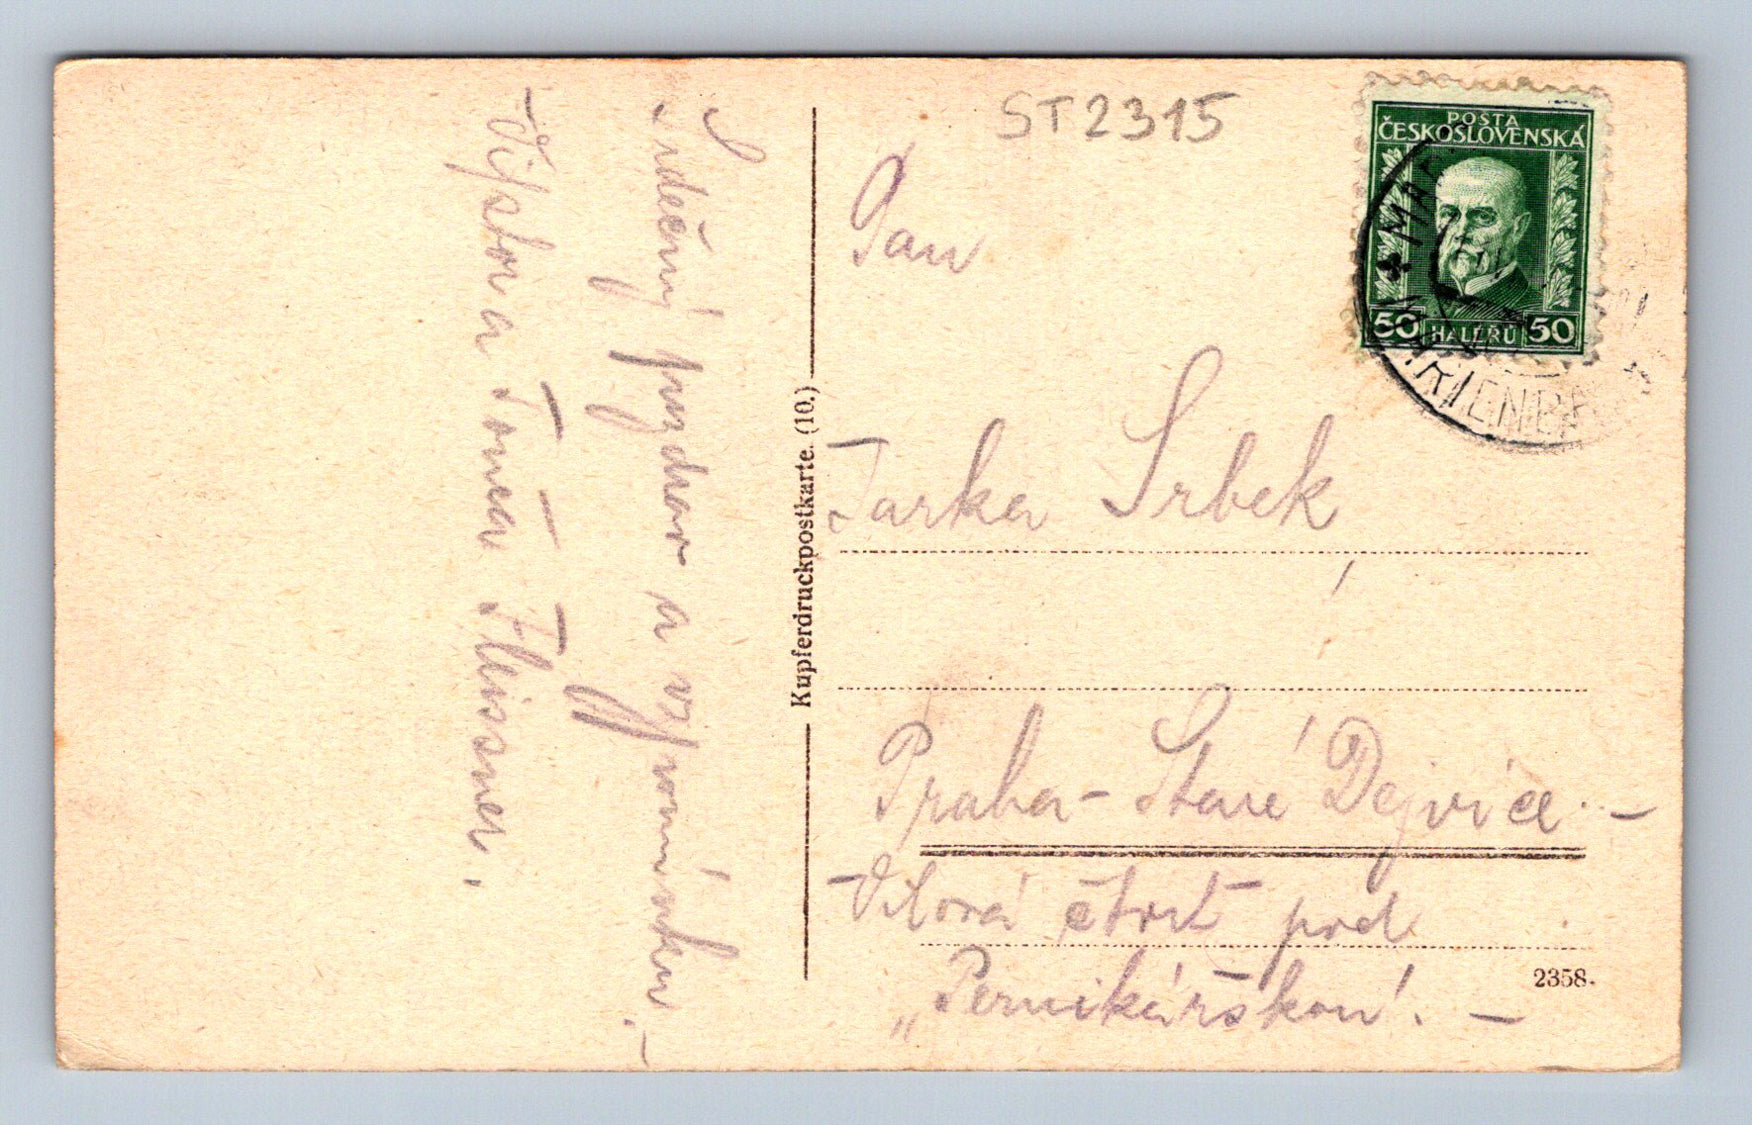 Srdečný pozdrav a vzpomínku.-
Viktor a Tonča Fleissner.
Kupferdruckpostkarte. (10.)
ST2315
POŠTA
ČESKOSLOVENSKÁ
50 HALÉŘŮ 50
MARIENBA
Pan
Jarka Srbek
Praha - Staré Dejvice. -
Vilová čtvrť pod
"Pernikářkou". -
2358.